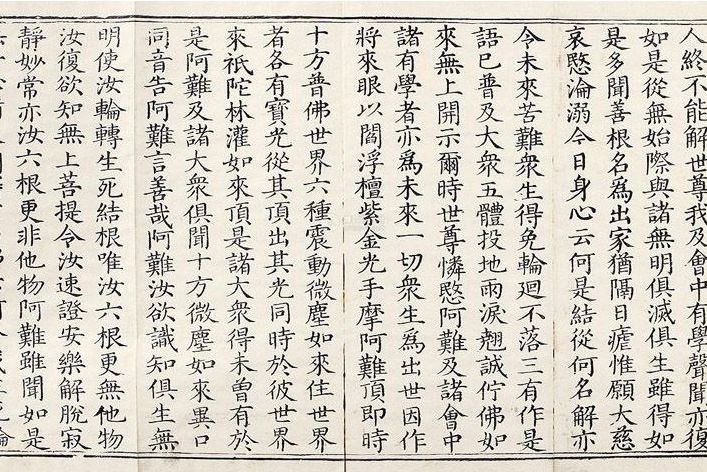 人終不能解世尊我及會中有學聲聞亦復
如是從無始際與諸無明俱滅俱生雖得如
是多聞善根名爲出家猶隔日瘧惟願大慈
哀愍淪溺今日身心云何是結從何名解亦
令未來苦難衆生得免輪迴不落三有作是
語已普及大衆五體投地雨淚翹誠佇佛如
來無上開示爾時世尊憐愍阿難及諸會中
諸有學者亦爲未來一切衆生爲出世因作
將來眼以閻浮檀紫金光手摩阿難頂即時
十方普佛世界六種震動微塵如來住世界
者各有寶光從其頂出其光同時於彼世界
來祇陀林灌如來頂是諸大衆得未曾有於
是阿難及諸大衆俱聞十方微塵如來異口
同音告阿難言善哉阿難汝欲識知俱生無
明使汝輪轉生死結根唯汝六根更無他物
汝復欲知無上菩提令汝速證安樂解脫寂
靜妙常亦汝六根更非他物阿難雖聞如是